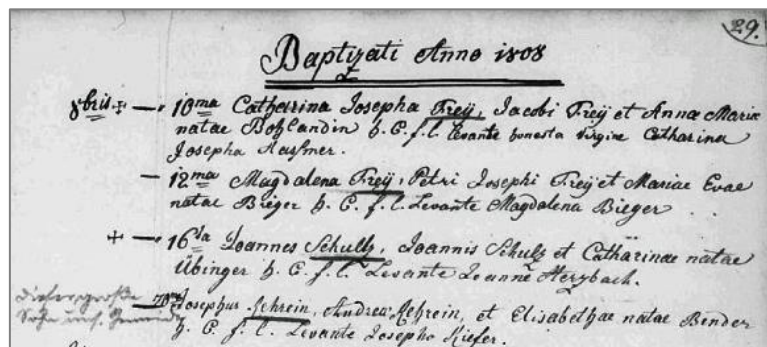 29.
Baptizati Anno 1808
8bris + — 10ma Catharina Josepha Freÿ, Jacobi Freÿ et Annae Mariae
natae Bohlandin h. C. f. l. Levante honesta virgine Catharina
Josepha Hassmer.
— 12ma Magdalena Freÿ, Petri Josephi Freÿ et Mariae Evae
natae Bieger h. C. f. l. Levante Magdalena Bieger
+ — 16ta Joannes Schultz, Joannis Schulz et Catharinae natae
Übinger h. C. f. l. Levante Joanne Herzbach.
Dieser große — 20ma Josephus Kehrein, Andreae Kehrein, et Elisabethae natae Bender
Sohn uns. h. C. f. l. Levante Josepho Kiefer.